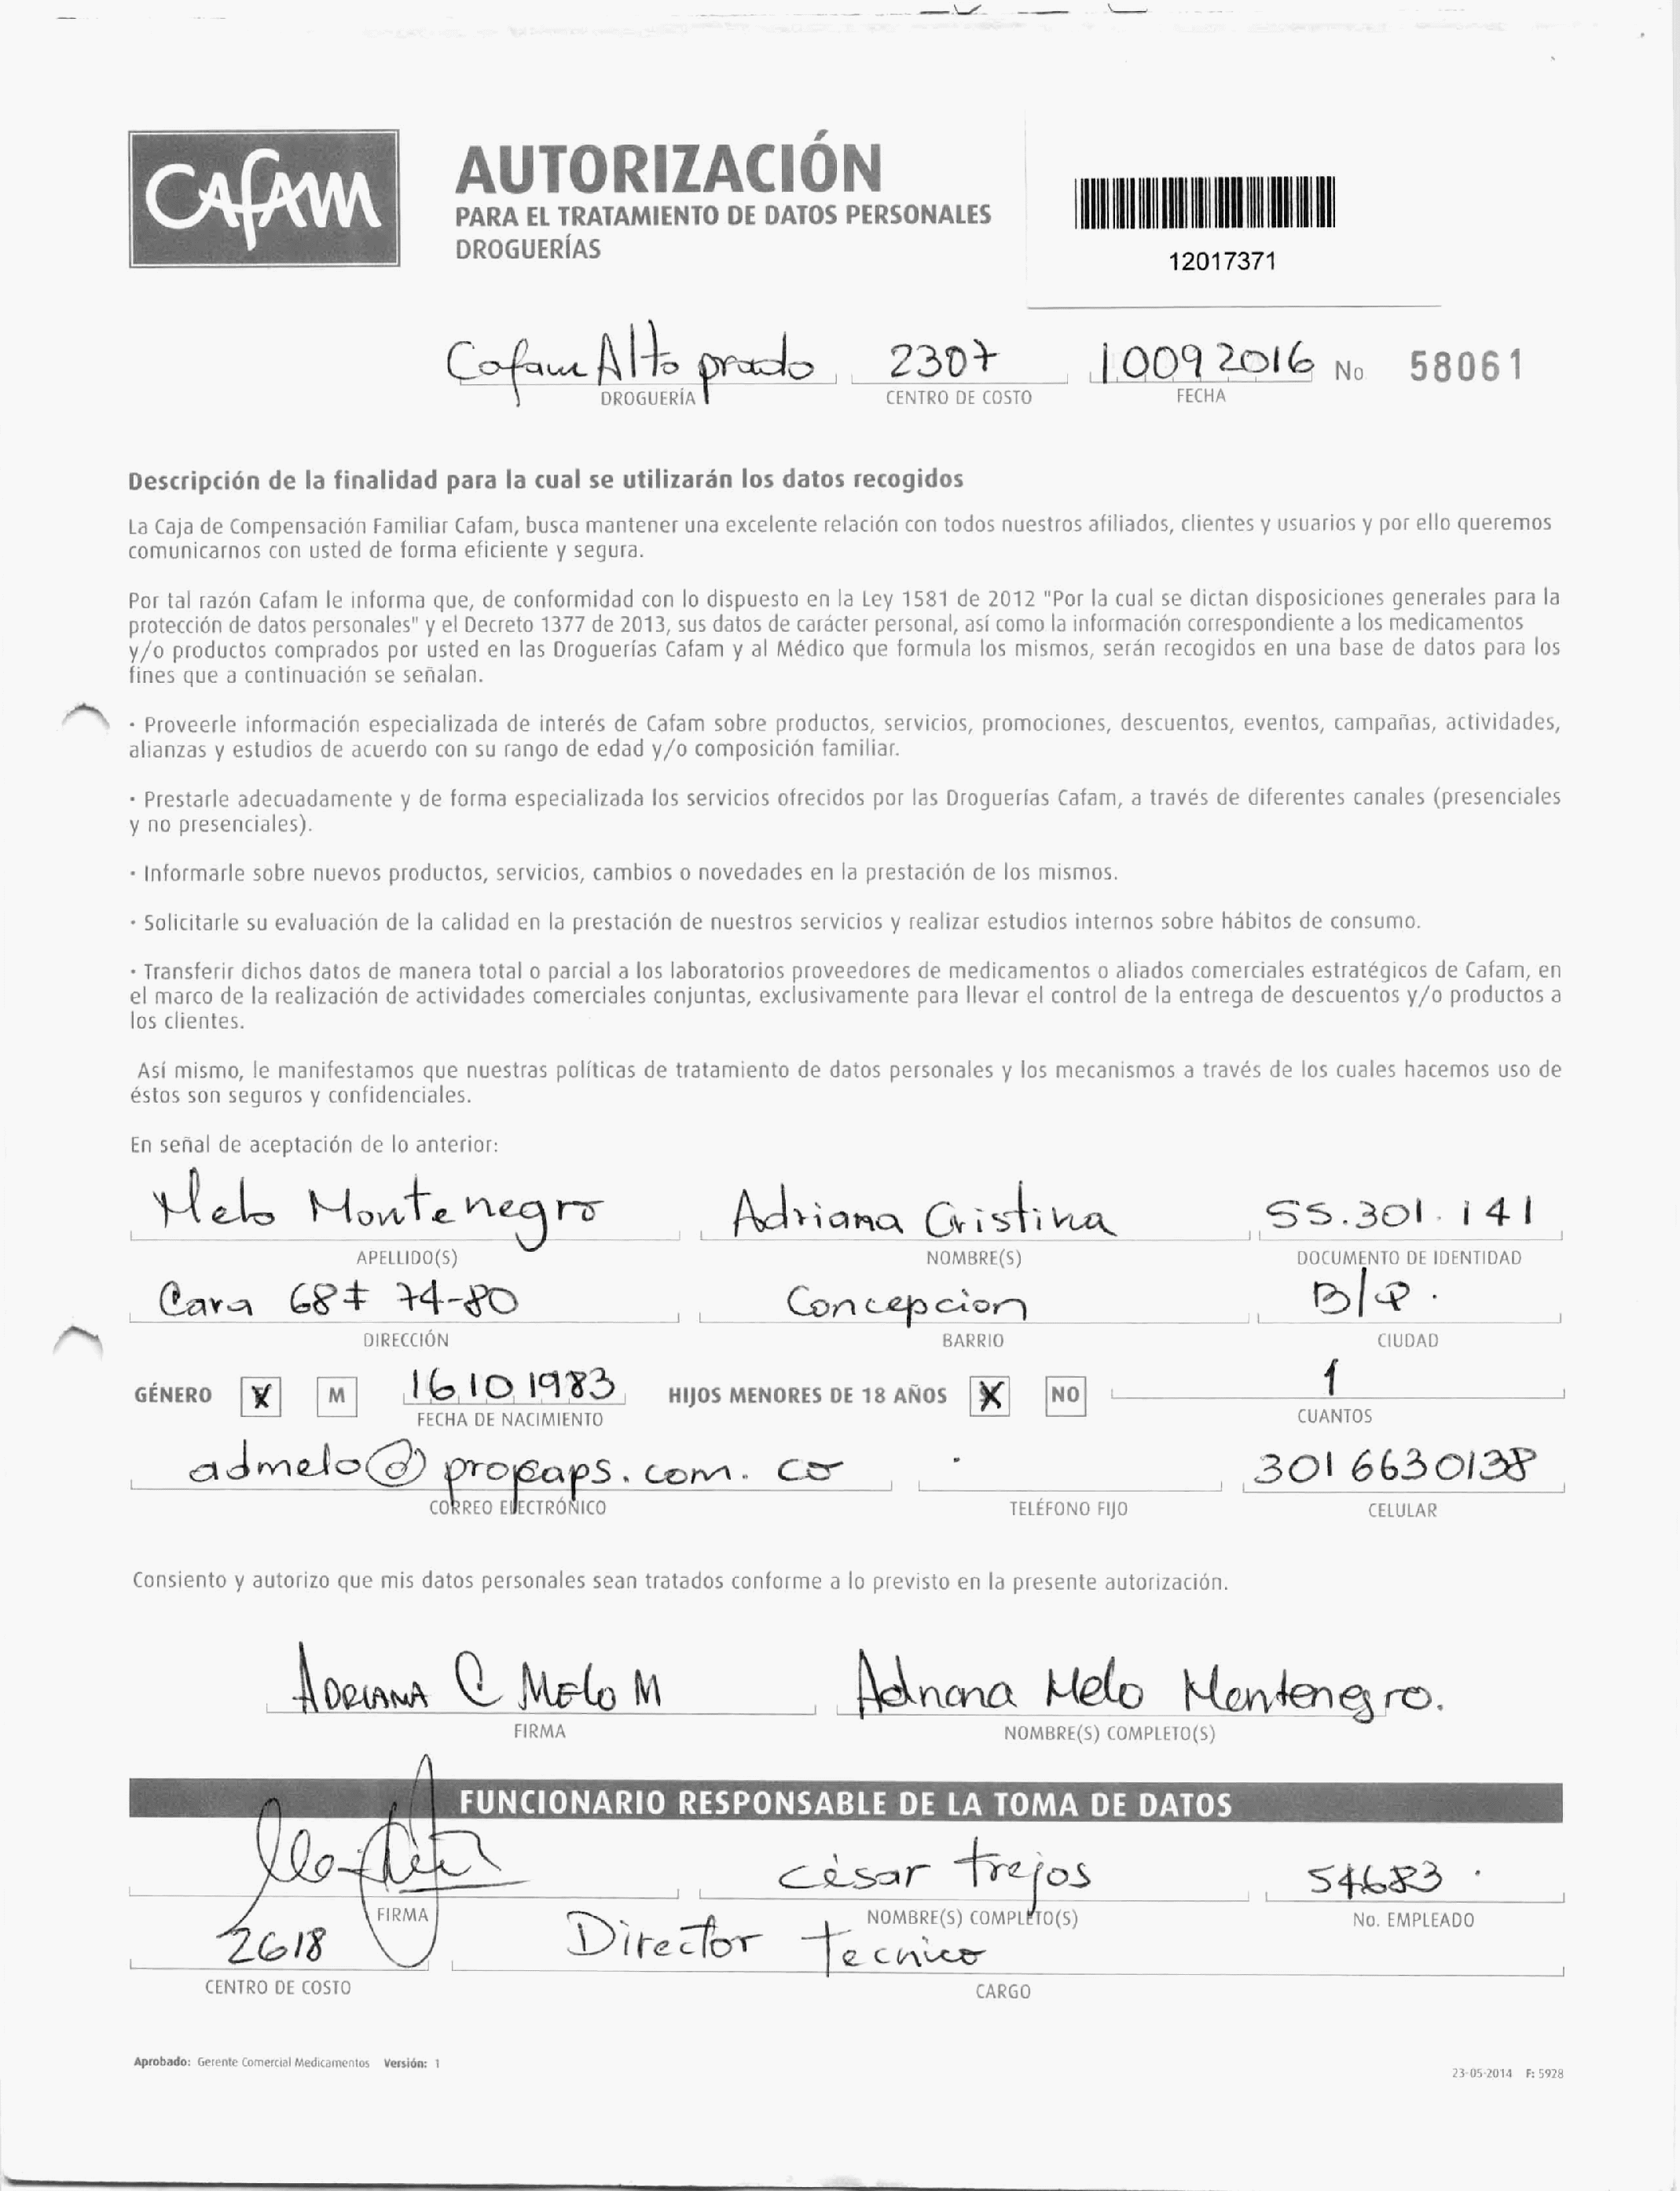 Cafam
AUTORIZACIÓN
PARA EL TRATAMIENTO DE DATOS PERSONALES
DROGUERÍAS
12017371
Cafam Alto prado 2307 10092016 No 58061
DROGUERÍA CENTRO DE COSTO FECHA
Descripción de la finalidad para la cual se utilizarán los datos recogidos
La Caja de Compensación Familiar Cafam, busca mantener una excelente relación con todos nuestros afiliados, clientes y usuarios y por ello queremos
comunicarnos con usted de forma eficiente y segura.
Por tal razón Cafam le informa que, de conformidad con lo dispuesto en la Ley 1581 de 2012 "Por la cual se dictan disposiciones generales para la
protección de datos personales" y el Decreto 1377 de 2013, sus datos de carácter personal, así como la información correspondiente a los medicamentos
y/o productos comprados por usted en las Droguerías Cafam y al Médico que formula los mismos, serán recogidos en una base de datos para los
fines que a continuación se señalan.
· Proveerle información especializada de interés de Cafam sobre productos, servicios, promociones, descuentos, eventos, campañas, actividades,
alianzas y estudios de acuerdo con su rango de edad y/o composición familiar.
· Prestarle adecuadamente y de forma especializada los servicios ofrecidos por las Droguerías Cafam, a través de diferentes canales (presenciales
y no presenciales).
· Informarle sobre nuevos productos, servicios, cambios o novedades en la prestación de los mismos.
· Solicitarle su evaluación de la calidad en la prestación de nuestros servicios y realizar estudios internos sobre hábitos de consumo.
· Transferir dichos datos de manera total o parcial a los laboratorios proveedores de medicamentos o aliados comerciales estratégicos de Cafam, en
el marco de la realización de actividades comerciales conjuntas, exclusivamente para llevar el control de la entrega de descuentos y/o productos a
los clientes.
Así mismo, le manifestamos que nuestras políticas de tratamiento de datos personales y los mecanismos a través de los cuales hacemos uso de
éstos son seguros y confidenciales.
En señal de aceptación de lo anterior:
Melo Montenegro Adriana Cristina 55.301.141
APELLIDO(S) NOMBRE(S) DOCUMENTO DE IDENTIDAD
Cara 68# 74-80 Concepcion B/Q.
DIRECCIÓN BARRIO CIUDAD
GÉNERO X M 16101983 HIJOS MENORES DE 18 AÑOS X NO 1
FECHA DE NACIMIENTO CUANTOS
admelo@procaps.com.co 3016630138
CORREO ELECTRÓNICO TELÉFONO FIJO CELULAR
Consiento y autorizo que mis datos personales sean tratados conforme a lo previsto en la presente autorización.
ADRIANA C MELO M Adriana Melo Montenegro.
FIRMA NOMBRE(S) COMPLETO(S)
FUNCIONARIO RESPONSABLE DE LA TOMA DE DATOS
césar trejos 54683.
FIRMA NOMBRE(S) COMPLETO(S) No. EMPLEADO
2618 Director tecnico
CENTRO DE COSTO CARGO
Aprobado: Gerente Comercial Medicamentos Versión: 1
23-05-2014 F: 5928